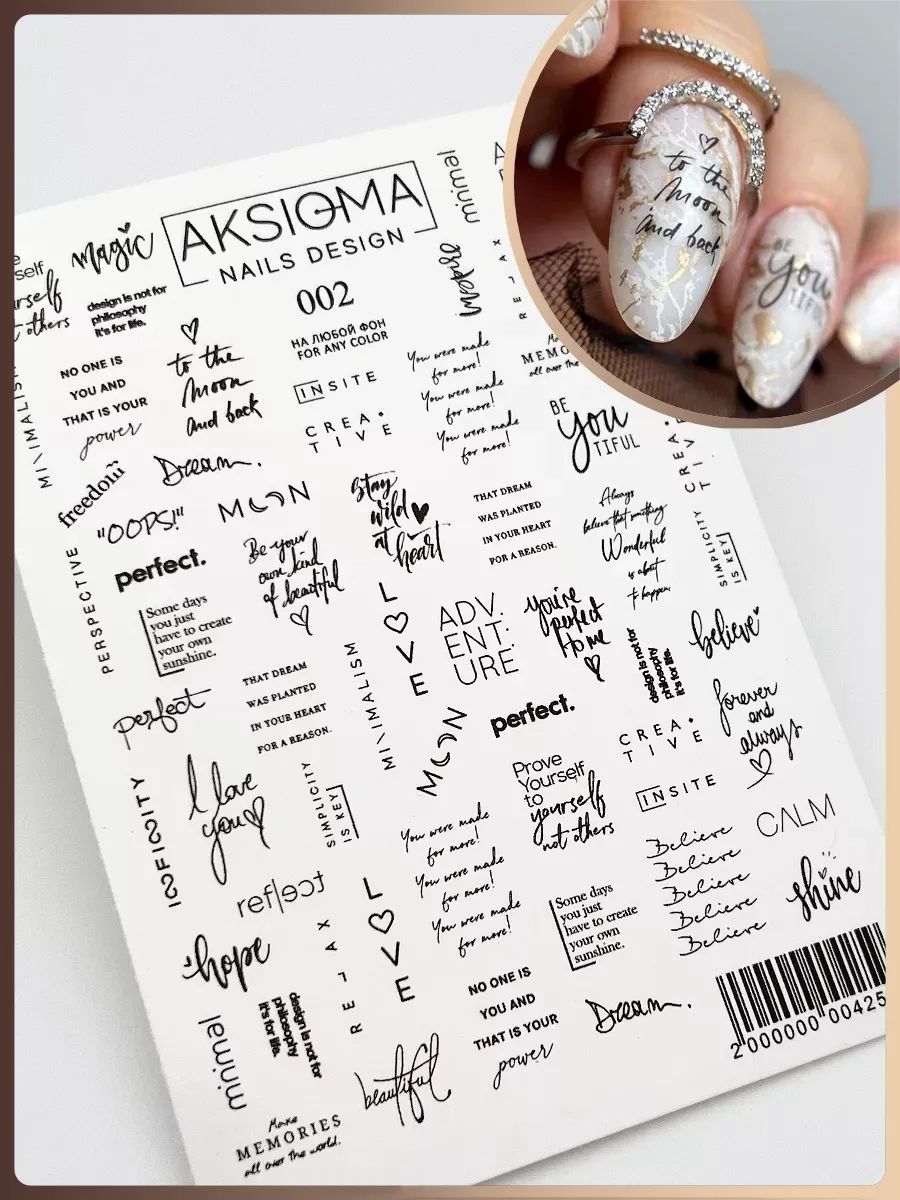 magic
AKSIOMA
NAILS DESIGN
002
НА ЛЮБОЙ ФОН
FOR ANY COLOR
minimal
people
self
others
design is not for
philosophy
it's for life.
NO ONE IS
YOU AND
THAT IS YOUR
power
to the
Moon
and back
INSITE
CREA
TIVE
You were made
for more!
You were made
for more!
You were made
for more!
BE
you
TIFUL
MINIMALISM
freedom
Dream.
"OOPS!"
MOON
stay
wild
at
heart
THAT DREAM
WAS PLANTED
IN YOUR HEART
FOR A REASON.
Always
believe that something
Wonderful
is about
to happen
CREA
TIVE
SIMPLICITY
IS KEY!
PERSPECTIVE
perfect.
Be your
own kind
of beautiful
Some days
you just
have to create
your own
sunshine.
LOVE
ADV.
ENT:
URE
you're
perfect
to me
design is not for
philosophy
it's for life.
believe
perfect
THAT DREAM
WAS PLANTED
IN YOUR HEART
FOR A REASON.
MINIMALISM
MOON
perfect.
CREA
TIVE
forever
and
always
I love
you
SIMPLICITY
IS KEY!
Prove
Yourself
to
yourself
not others
INSITE
You were made
for more!
You were made
for more!
You were made
for more!
Believe
Believe
Believe
Believe
Believe
CALM
shine
reflect
LOVE
Some days
you just
have to create
your own
sunshine.
hope
RELAX
design is not for
philosophy
it's for life.
minimal
NO ONE IS
YOU AND
THAT IS YOUR
power
Dream.
beautiful
Make
MEMORIES
all over the world.
2 000000 00425
to the
Moon
and back
BE
you